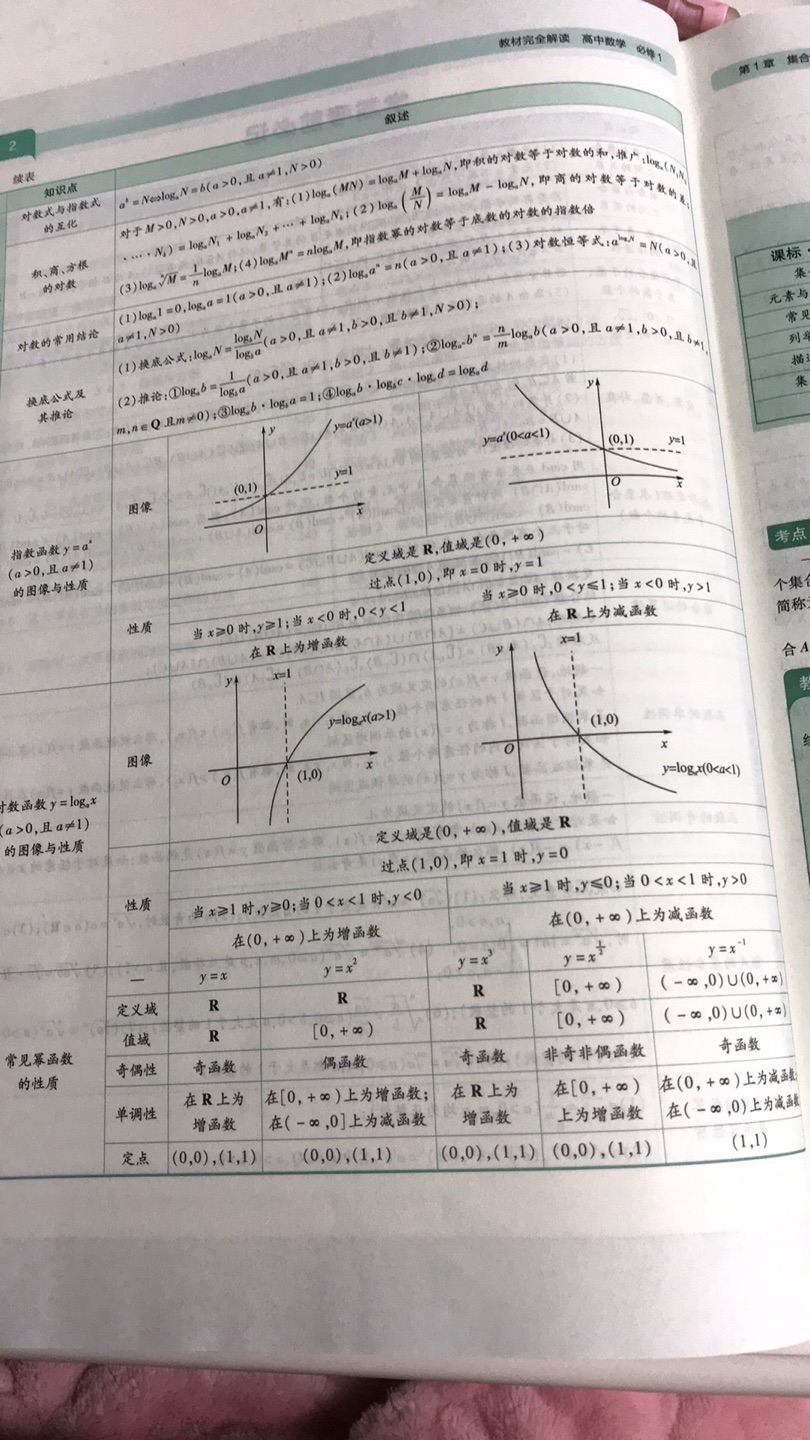 教材完全解读 高中数学 必修1
第1章 集合
2
续表
知识点
叙述
对数式与指数式
的互化
aᵇ=N⇔logₐN=b(a>0,且a≠1,N>0)
积、商、方根
的对数
对于M>0,N>0,a>0,a≠1,有:(1)logₐ(MN)=logₐM+logₐN,即积的对数等于对数的和,推广:logₐ(N₁N₂
·…·Nₖ)=logₐN₁+logₐN₂+…+logₐNₖ;(2)logₐ(M/N)=logₐM-logₐN,即商的对数等于对数的差;
(3)logₐⁿ√M=1/n logₐM;(4)logₐMⁿ=nlogₐM,即指数幂的对数等于底数的对数的指数倍
对数的常用结论
(1)logₐ1=0,logₐa=1(a>0,且a≠1);(2)logₐaⁿ=n(a>0,且a≠1);(3)对数恒等式:a^(logₐN)=N(a>0,且
a≠1,N>0)
换底公式及
其推论
(1)换底公式:logₐN=log_bN/log_ba(a>0,且a≠1,b>0,且b≠1,N>0);
(2)推论:①logₐb=1/log_ba(a>0,且a≠1,b>0,且b≠1);②log_(aᵐ)bⁿ=n/m logₐb(a>0,且a≠1,b>0,且b≠1,
m,n∈Q且m≠0);③logₐb·log_ba=1;④logₐb·log_bc·log_cd=logₐd
指数函数y=aˣ
(a>0,且a≠1)
的图像与性质
图像
y
y=aˣ(a>1)
(0,1)
y=1
O
x
y
y=aˣ(0<a<1)
(0,1)
y=1
O
x
性质
定义域是R,值域是(0,+∞)
过点(1,0),即x=0时,y=1
当x≥0时,y≥1;当x<0时,0<y<1
当x≥0时,0<y≤1;当x<0时,y>1
在R上为增函数
在R上为减函数
对数函数y=logₐx
(a>0,且a≠1)
的图像与性质
图像
y
x=1
y=logₐx(a>1)
O
(1,0)
x
y
x=1
(1,0)
O
x
y=logₐx(0<a<1)
性质
定义域是(0,+∞),值域是R
过点(1,0),即x=1时,y=0
当x≥1时,y≥0;当0<x<1时,y<0
当x≥1时,y≤0;当0<x<1时,y>0
在(0,+∞)上为增函数
在(0,+∞)上为减函数
常见幂函数
的性质
— y=x y=x² y=x³ y=x^(1/2) y=x⁻¹
定义域 R R R [0,+∞) (-∞,0)∪(0,+∞)
值域 R [0,+∞) R [0,+∞) (-∞,0)∪(0,+∞)
奇偶性 奇函数 偶函数 奇函数 非奇非偶函数 奇函数
单调性 在R上为 在[0,+∞)上为增函数; 在R上为 在[0,+∞) 在(0,+∞)上为减函数;
增函数 在(-∞,0]上为减函数 增函数 上为增函数 在(-∞,0)上为减函数
定点 (0,0),(1,1) (0,0),(1,1) (0,0),(1,1) (0,0),(1,1) (1,1)
课标
集
元素与
常见
列举
描述
集
考点
个集合
简称
合A